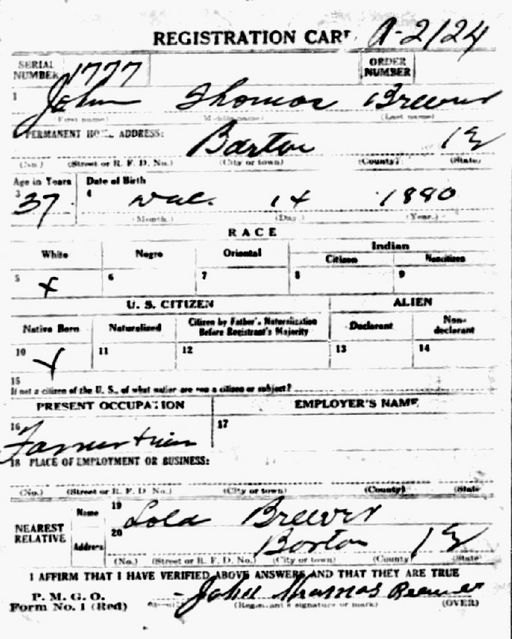 REGISTRATION CARD A-2124
SERIAL NUMBER 1777 ORDER NUMBER
1 John Thomas Brewer
(First name) (Middle name) (Last name)
PERMANENT HOME ADDRESS: Barton
(No.) (Street or R. F. D. No.) (City or town) (County) (State)
Age in Years Date of Birth
3 37 4 Dec. 14 1880
(Month.) (Day.) (Year.)
RACE
White Negro Oriental Indian
Citizen Noncitizen
5 x 6 7 8 9
U. S. CITIZEN ALIEN
Native Born Naturalized Citizen by Father's Naturalization Before Registrant's Majority Declarant Non-declarant
10 x 11 12 13 14
15
If not a citizen of the U. S., of what nation are you a citizen or subject?
PRESENT OCCUPATION EMPLOYER'S NAME
16 17
18 PLACE OF EMPLOYMENT OR BUSINESS:
(No.) (Street or R. F. D. No.) (City or town) (County) (State)
NEAREST RELATIVE Name 19 Lola Brewer
Address 20 Barton
(No.) (Street or R. F. D. No.) (City or town) (County) (State)
I AFFIRM THAT I HAVE VERIFIED ABOVE ANSWERS AND THAT THEY ARE TRUE
P. M. G. O.
Form No. 1 (Red) John Thomas Brewer
(Registrant's signature or mark) (OVER)